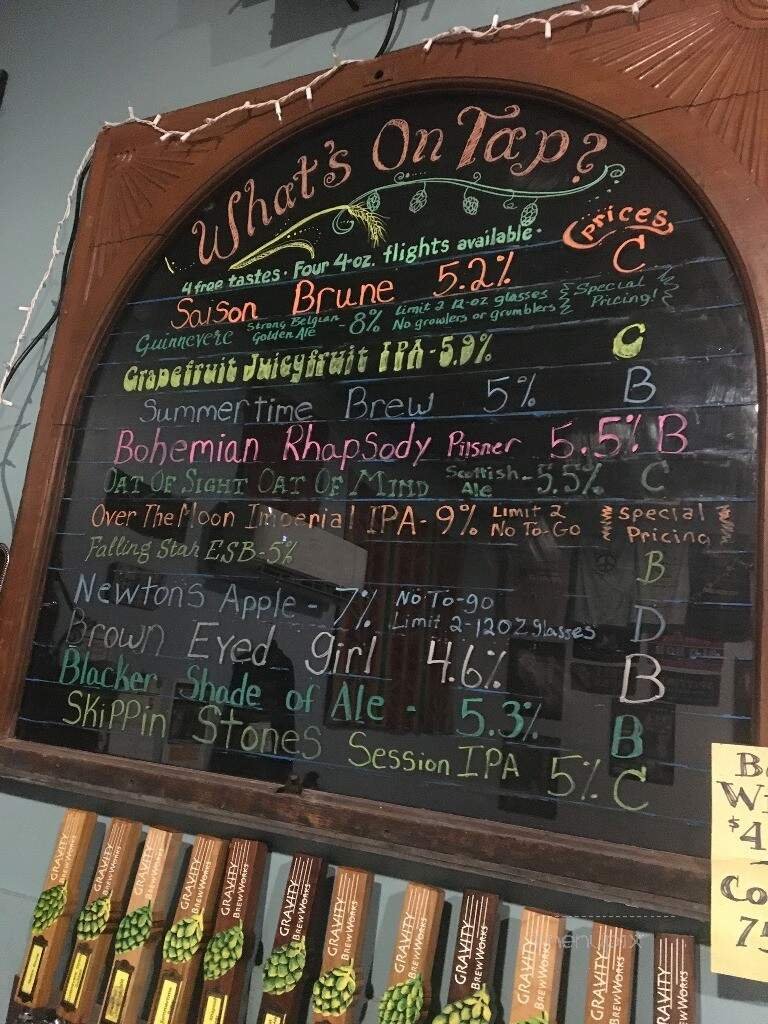 What's On Tap?
4 free tastes · Four 4-oz. flights available ·
prices
Saison Brune 5.2% C
Guinnevere Strong Belgian Golden Ale - 8% Limit 2 12-oz glasses No growlers or grumblers Special Pricing!
Grapefruit Juicyfruit IPA - 5.9% C
Summertime Brew 5% B
Bohemian Rhapsody Pilsner 5.5% B
Oat Of Sight Oat Of Mind Scottish Ale - 5.5% C
Over The Moon Imperial IPA - 9% Limit 2 No To-Go Special Pricing
Falling Star ESB - 5% B
Newtons Apple - 7% No To-go Limit 2 - 12oz glasses D
Brown Eyed girl 4.6% B
Blacker Shade of Ale - 5.3% B
Skippin Stones Session IPA 5% C
$4
75
GRAVITY BREWWORKS
GRAVITY BREWWORKS
GRAVITY BREWWORKS
GRAVITY BREWWORKS
GRAVITY BREWWORKS
GRAVITY BREWWORKS
GRAVITY BREWWORKS
GRAVITY BREWWORKS
GRAVITY BREWWORKS
GRAVITY BREWWORKS
GRAVITY BREWWORKS
GRAVITY
menupix